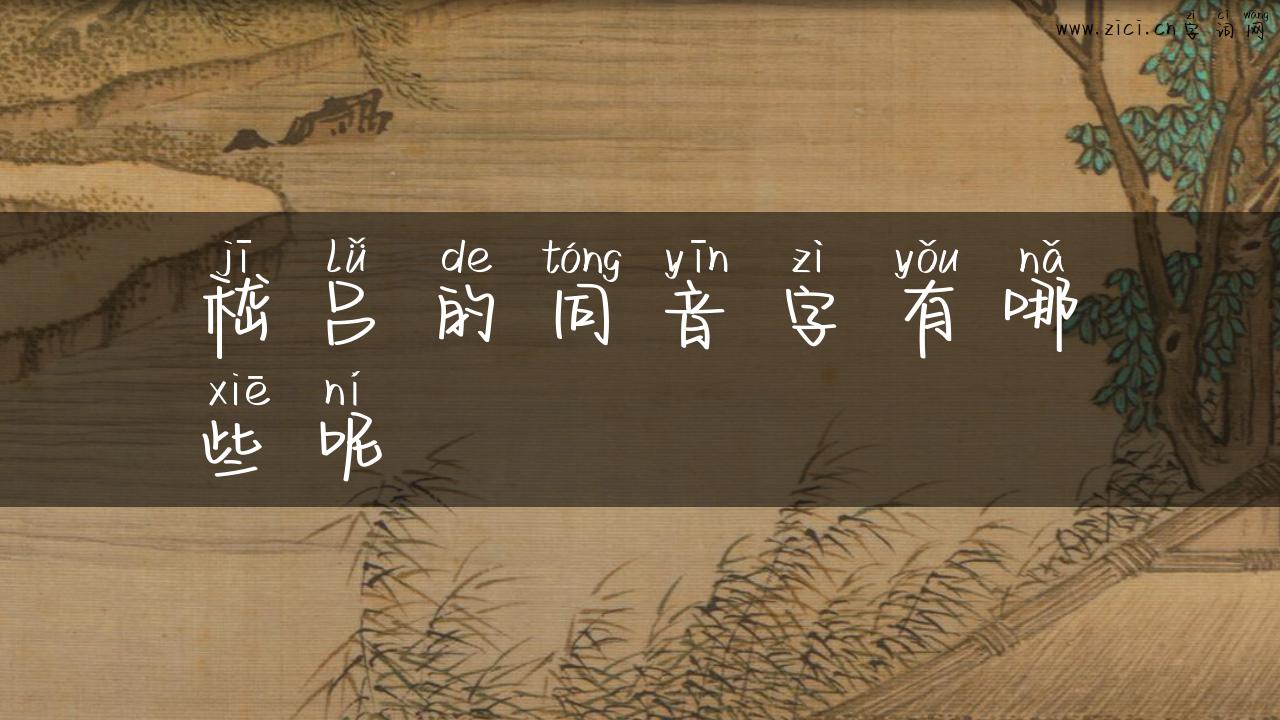 zì cí wǎng
www.zici.cn字词网
jī lǚ de tóng yīn zì yǒu nǎ
嵇吕的同音字有哪
xiē ní
些呢